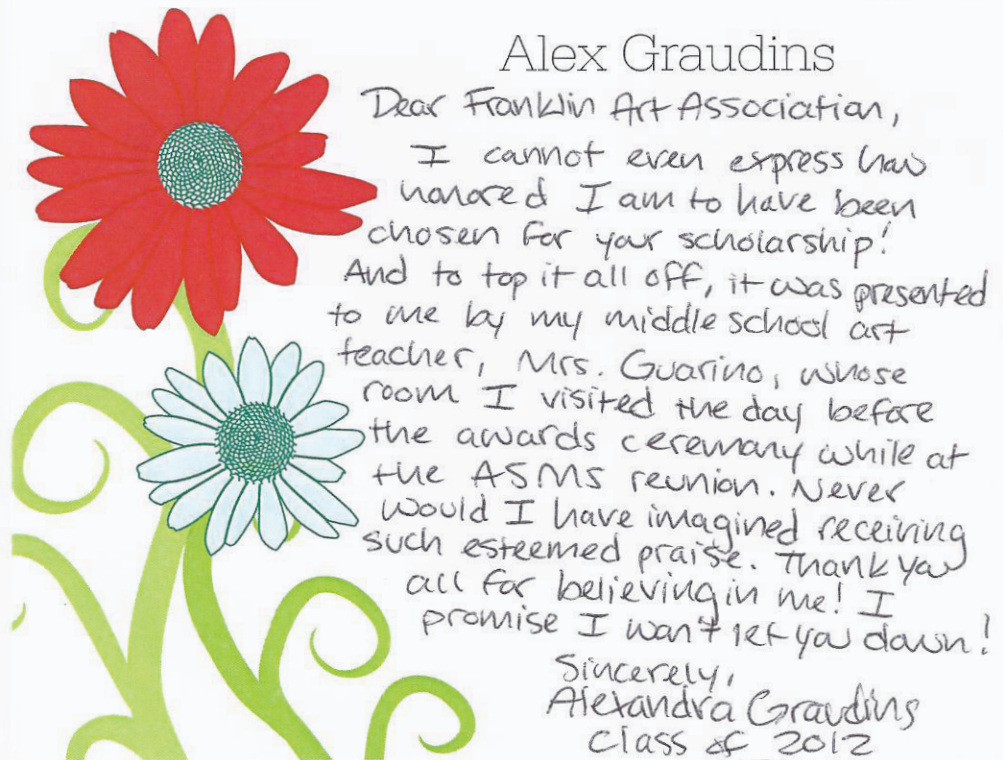 Alex Graudins
Dear Franklin Art Association,
I cannot even express how
honored I am to have been
chosen for your scholarship!
And to top it all off, it was presented
to me by my middle school art
teacher, Mrs. Guarino, whose
room I visited the day before
the awards ceremony while at
the ASMS reunion. Never
would I have imagined receiving
such esteemed praise. Thank you
all for believing in me! I
promise I won't let you down!
Sincerely,
Alexandra Graudins
Class of 2012